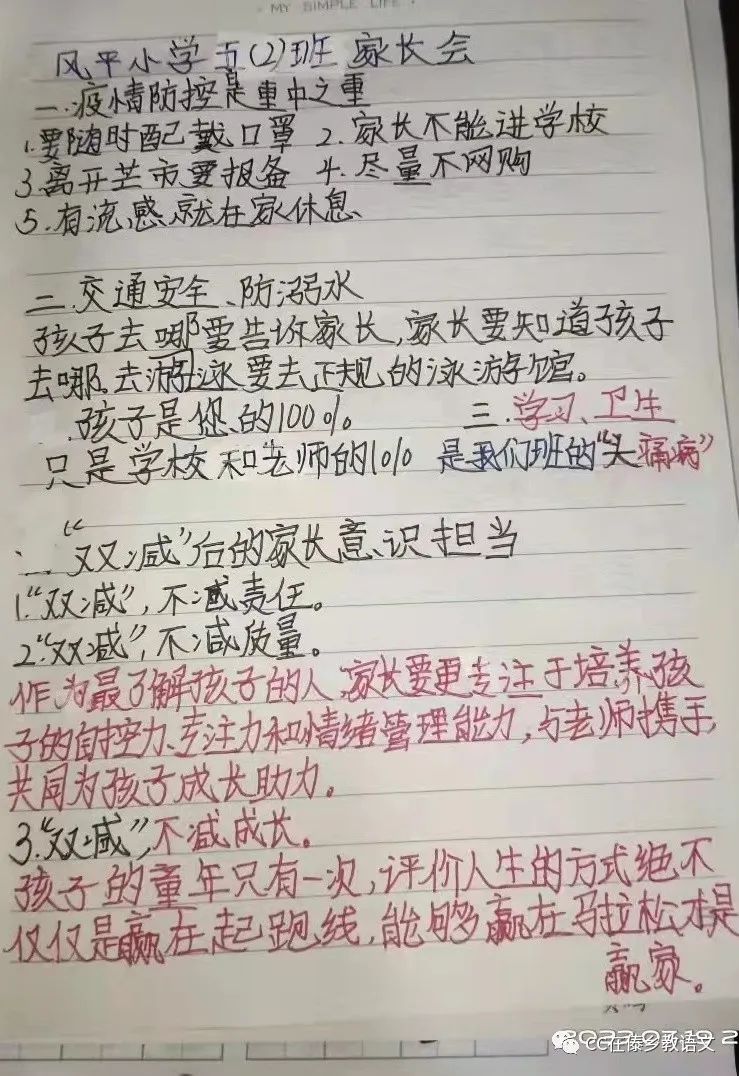 MY SIMPLE LIFE
风平小学五(2)班 家长会
一.疫情防控是重中之重
1.要随时配戴口罩 2.家长不能进学校
3.离开芒市要报备 4.尽量不网购
5.有流感就在家休息
二.交通安全、防溺水
孩子去哪要告诉家长,家长要知道孩子
去哪。去游泳要去正规的泳游馆。
孩子是您的100% 三.学习、卫生
只是学校和老师的10% 是我们班的“头痛病”
二“双减”后的家长意识担当
1.“双减”,不减责任。
2.“双减”,不减质量。
作为最了解孩子的人,家长要更专注于培养孩
子的自控力、专注力和情绪管理能力,与老师携手,
共同为孩子成长助力。
3.“双减”,不减成长。
孩子的童年只有一次,评价人生的方式绝不
仅仅是赢在起跑线,能够赢在马拉松才是
赢家。
CC在傣乡教语文